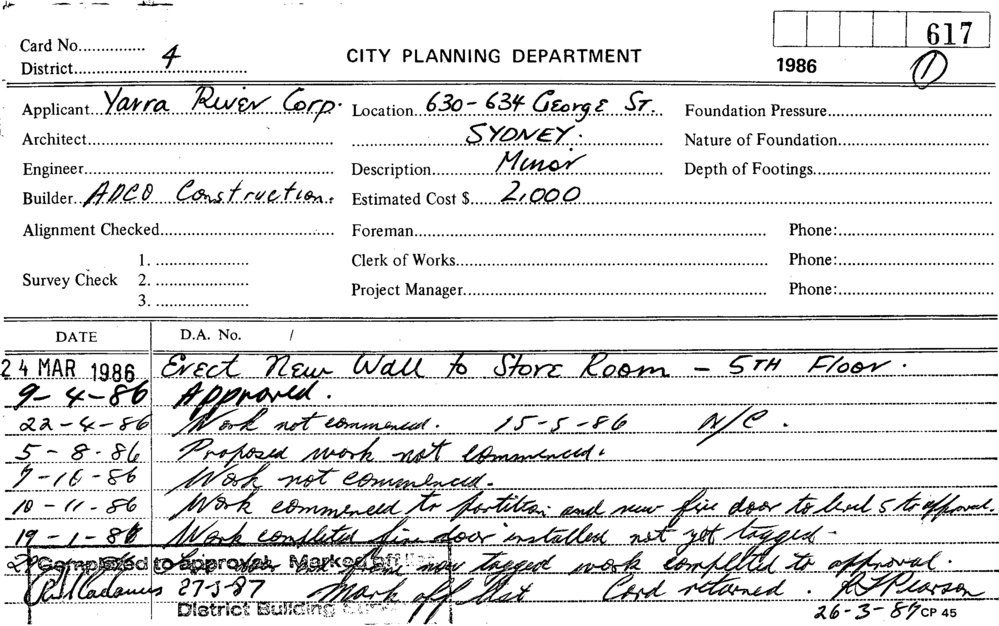 617
Card No............... CITY PLANNING DEPARTMENT 1986 1
District 4
Applicant Yarra River Corp. Location 630-634 George St. Foundation Pressure
Architect SYDNEY. Nature of Foundation
Engineer Description Minor Depth of Footings
Builder ADCO Construction. Estimated Cost $ 2,000
Alignment Checked Foreman Phone:
1. Clerk of Works Phone:
Survey Check 2.
3. Project Manager Phone:
DATE D.A. No. /
24 MAR 1986 Erect New Wall to Store Room - 5TH Floor.
9-4-86 Approved.
22-4-86 Work not commenced. 15-5-86 N/C.
5-8-86 Proposed work not commenced.
7-10-86 Work not commenced.
10-11-86 Work commenced to partition and new fire door to level 5 to approval.
19-1-86 Work completed fire door installed not yet tagged.
Completed to approval Marked Off now tagged work completed to approval.
27-3-87 Mark off Card returned. Pearson
District Building 26-3-87 CP 45